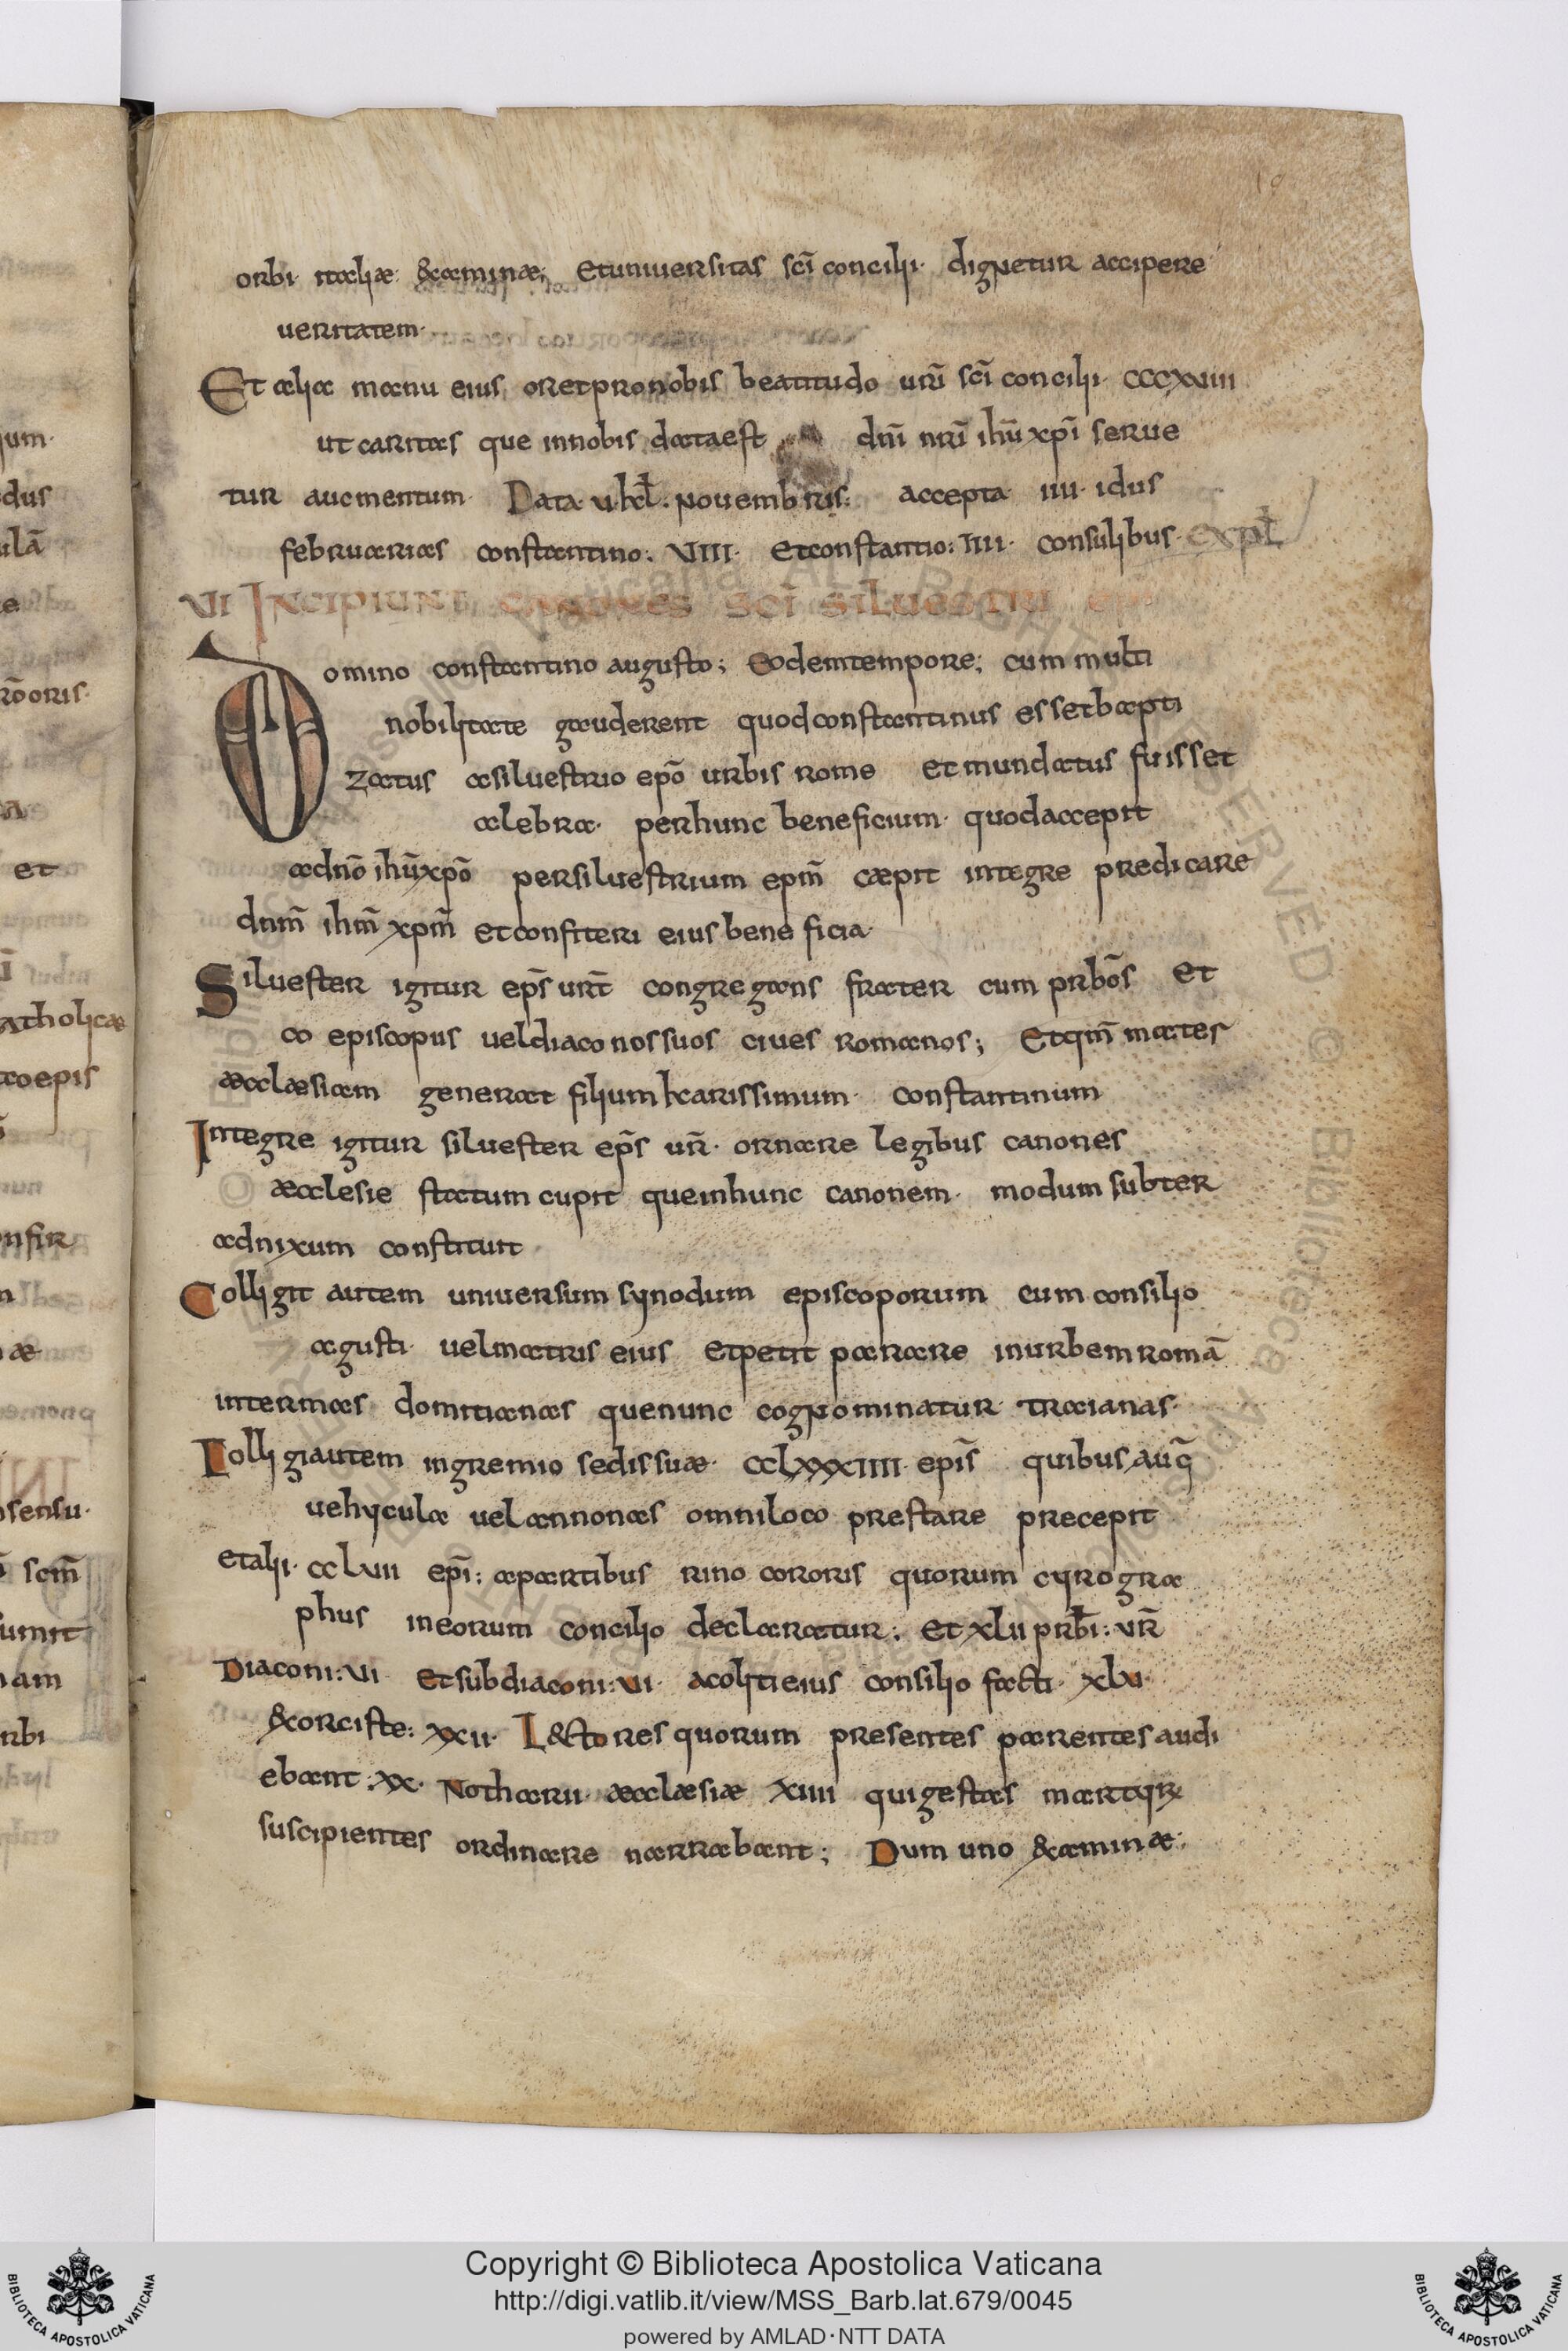 orbi· italiæ· &aminæ; et universitas sc̄i concilii· dignetur accipere
ueritatem·
Et alia manu eius oret pro nobis beatitudo ur̄i sc̄i concilii· CCCXXIII
ut caritas que in nobis data est dn̄i nr̄i ihū xp̄i serue
tur aucmentum· Data· u· kal̄· nouembris: accepta· IIII· idus
februarias constantino: VIIII· et constantio: IIII· consulibus· expl̄
VI INCIPIUNT CANONES SCĪ SILUESTRI EP
Domino constantino augusto; Eodem tempore; cum multi
nobilitate gauderent quod constantinus esset bapti
zatus a siluestrio ep̄o urbis rome et mundatus fuisset
a lebra· per hunc beneficium· quod accepit
a dn̄o ihū xp̄o per siluestrium ep̄m cæpit integre predicare
dn̄m ihm̄ xpm̄ et confiteri eius bene ficia·
Siluester igitur ep̄s ur̄t congregans frater cum prbōs et
co episcopus uel diaconos suos ciues romanos; Et qm̄ mates
æcclæsiam generat filium karissimum· constantinum
Integre igitur siluester ep̄s ur̄· ornare legibus canones
æcclesie statum cupit que in hunc canonem· modum subter
adnixum constituit
Colligit autem uniuersum synodum episcoporum cum consilio
agusti· uel matris eius et petit parare in urbem romā
inter mas domitianas que nunc cognominatur traianas·
Colligi autem in gremio sedis suæ· CCLXXXIIII· epīs quibus auq̄
uehycula uel annonas omni loco prestare precepit
et alii· CCLVII epī: a partibus rino cororis quorum cyrogra
phus in eorum concilio declaratur; et XLII prb̄i: ur̄
Diaconi: VI et subdiaconi: VI· acoliti eius consilio facti· XLV·
&orciste: XXII· L&tores quorum presentes parentes audi
ebant: XX· Notharii· æcclæsiæ XIIII qui gestas martyrꝝ
suscipientes ordinare narrabant; Dum uno &aminæ;
Copyright © Biblioteca Apostolica Vaticana
http://digi.vatlib.it/view/MSS_Barb.lat.679/0045
powered by AMLAD·NTT DATA